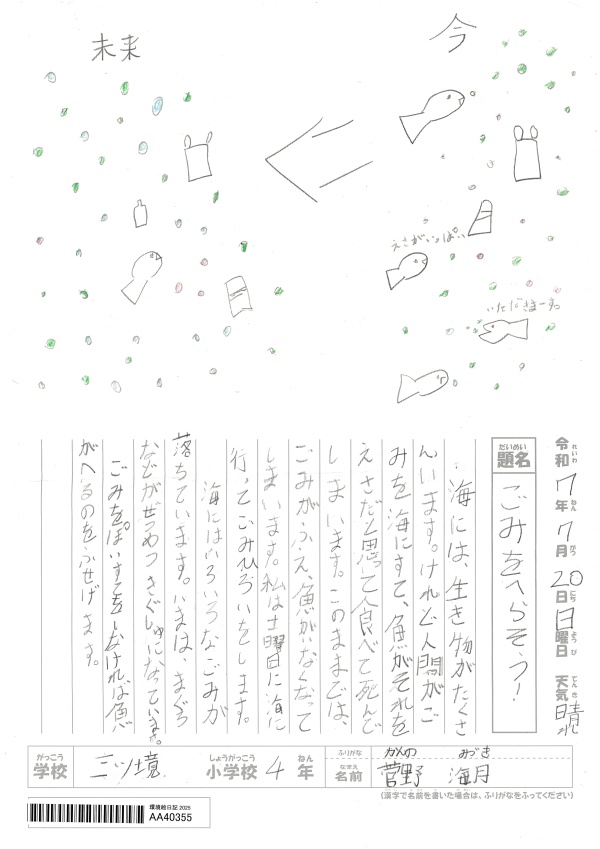 今
未来
えさがいっぱい
いただきまーす。
令和7年7月20日日曜日 天気 晴れ
れいわ ねん がつ にち ようび てんき
だいめい
題名
ごみをへらそう!
海には、生き物がたくさ
んいます。けれど人間がご
みを海にすて、魚がそれを
えさだと思って食べて死んで
しまいます。このままでは、
ごみがふえ、魚がいなくなって
しまいます。私は土曜日に海に
行ってごみひろいをします。
海にはいろいろなごみが
落ちています。いまは、まぐろ
などがぜつめつきぐしゅになっています。
ごみをぽいすてをしなければ魚
がへるのをふせげます。
がっこう
学校
三ツ境
しょうがっこう
小学校
4
ねん
年
ふりがな
かんの みづき
なまえ
名前
菅野 海月
(漢字で名前を書いた場合は、ふりがなをふってください)
環境絵日記 2025
AA40355